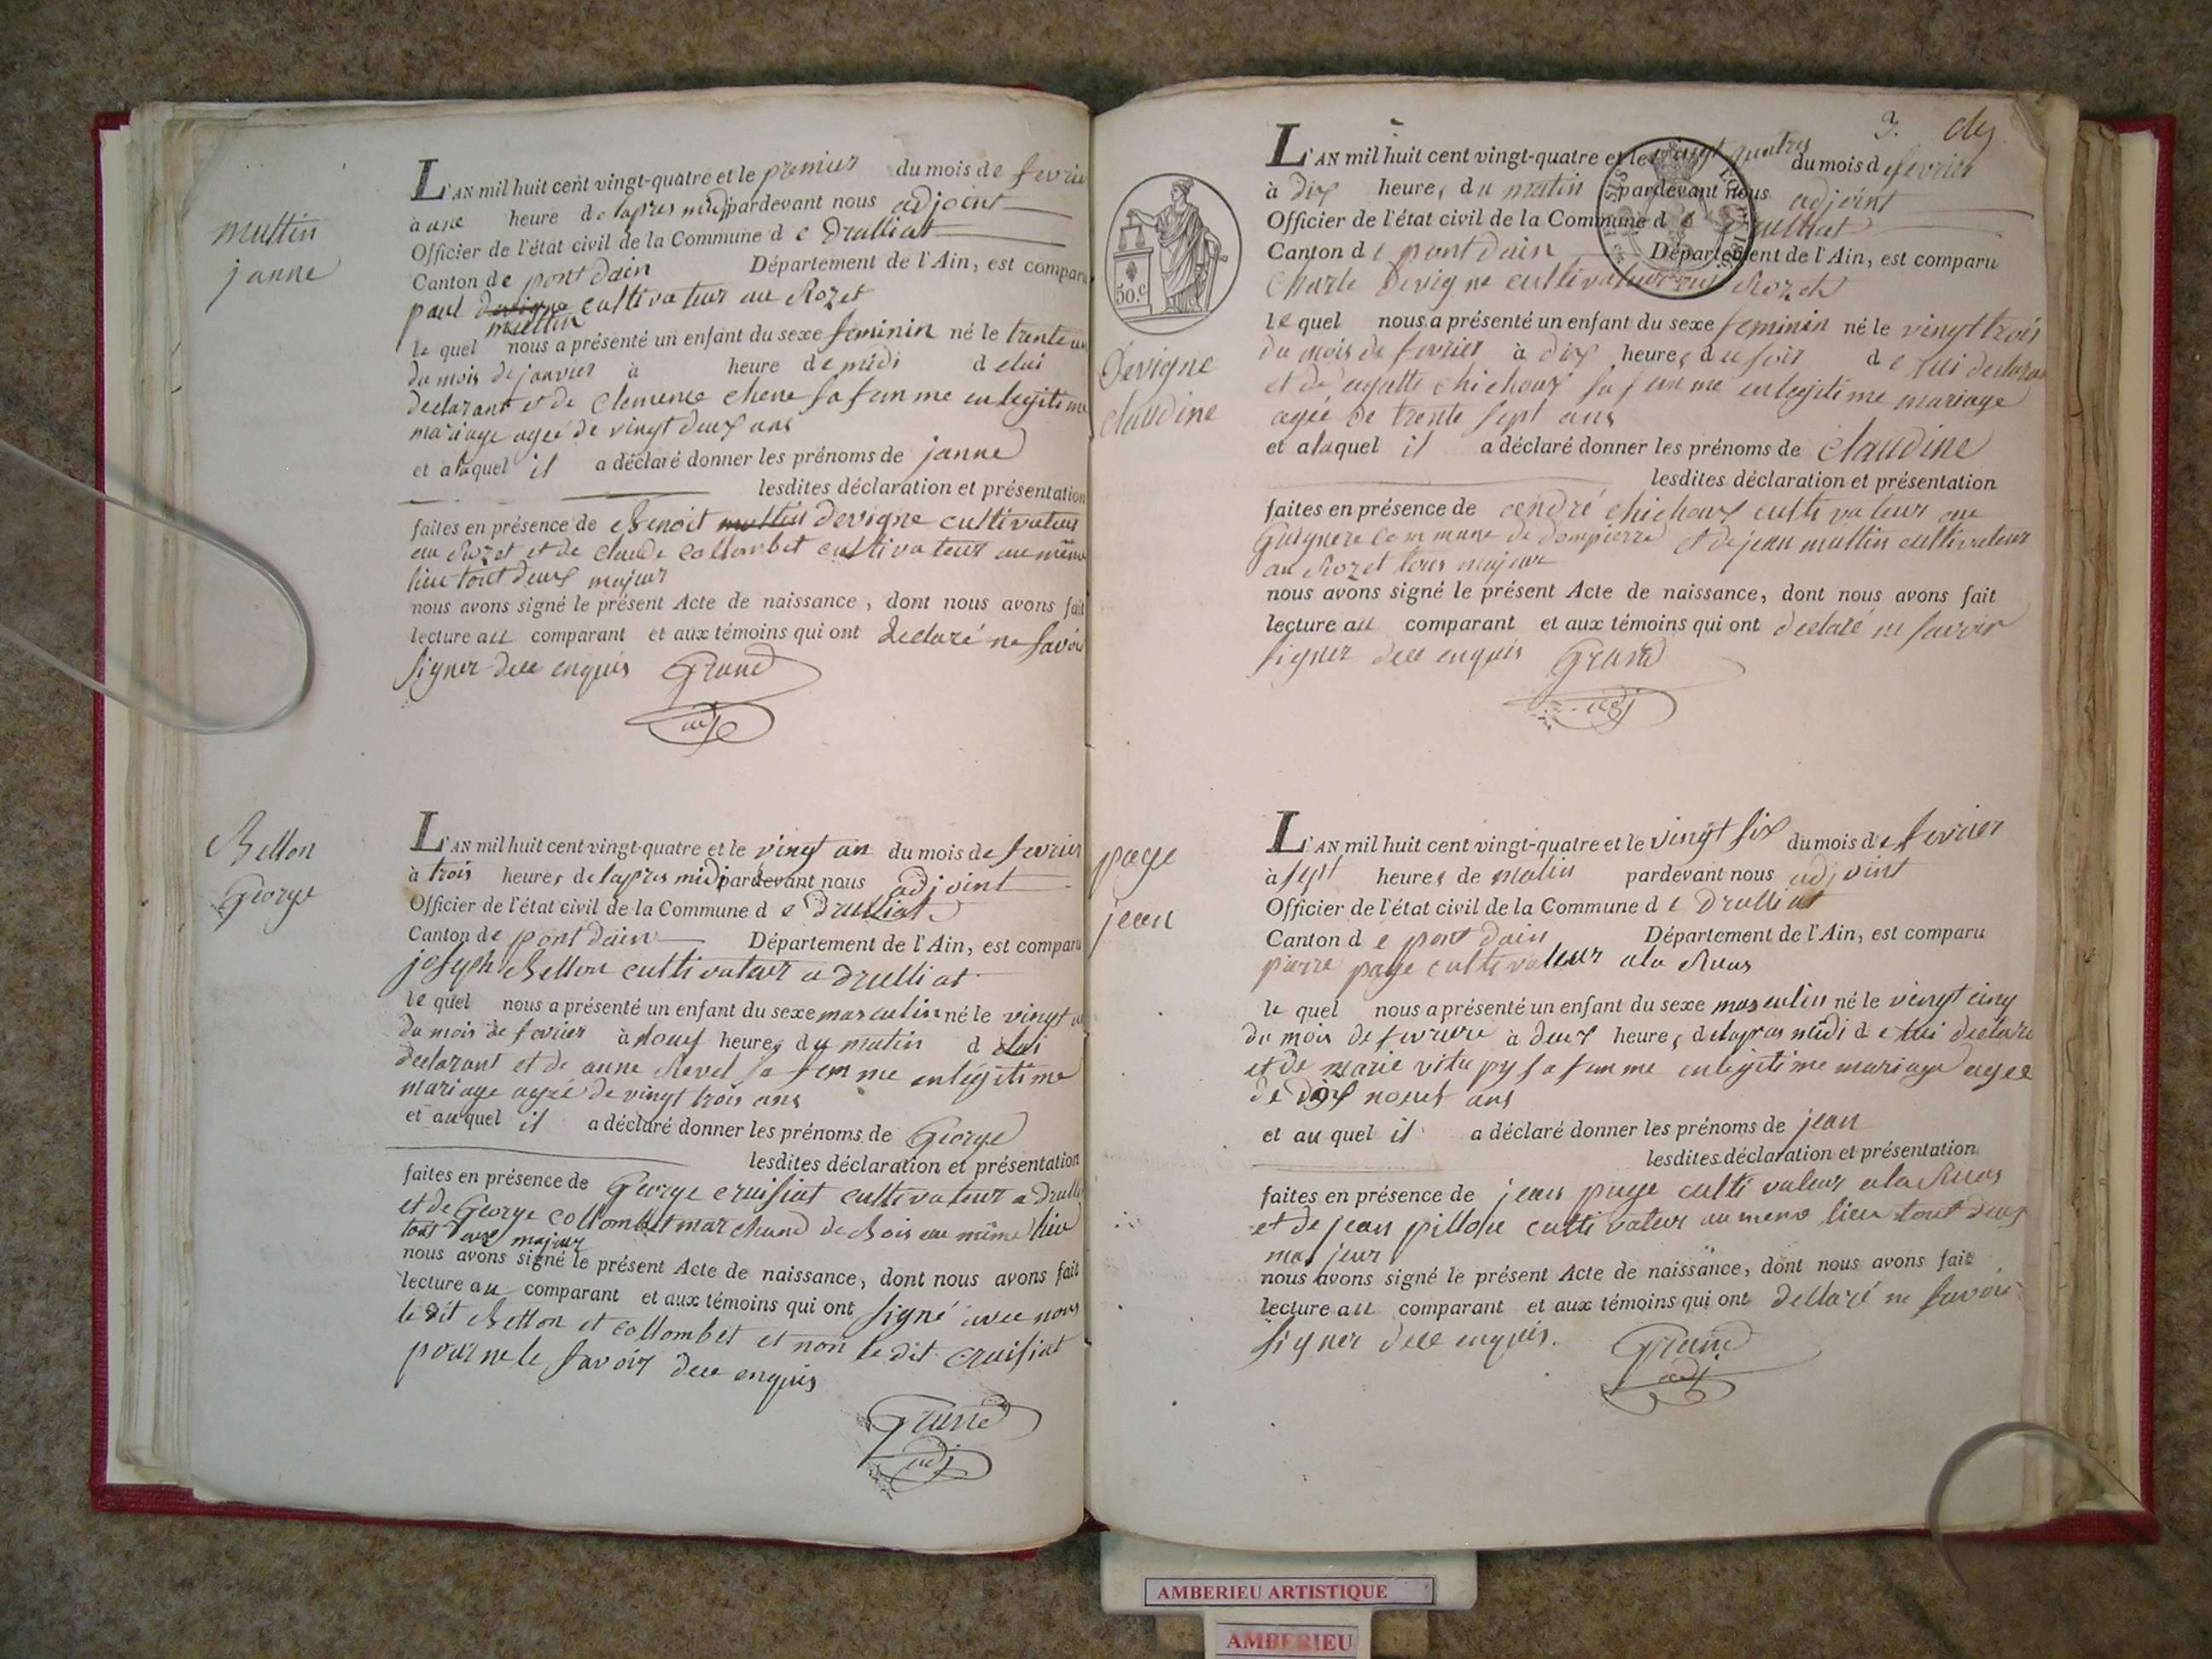 multin
janne
L'AN mil huit cent vingt-quatre et le premier du mois de fevrier
à une heure de lapres midj pardevant nous adjoint
Officier de l'état civil de la Commune d e Drulliat
Canton de pont dain Département de l'Ain, est comparu
paul devigne cultivateur au Rozet
multin
le quel nous a présenté un enfant du sexe feminin né le trente un
du mois de janvier à heure de midi d elui
declarant et de Clemence chene sa femme en legitime
mariage agée de vingt deux ans
et a laquel il a déclaré donner les prénoms de janne
lesdites déclaration et présentation
faites en présence de Benoit multin devigne cultivateur
au Rozet et de claude collombet cultivateur au même
lieu tout deux majeur
nous avons signé le présent Acte de naissance, dont nous avons fait
lecture au comparant et aux témoins qui ont declaré ne savoir
signer dece enquis Grand
adj
Bellon
George
L'AN mil huit cent vingt-quatre et le vingt un du mois de fevrier
à trois heures de lapres midi pardevant nous adjoint
Officier de l'état civil de la Commune d e Drulliat
Canton de pont dain Département de l'Ain, est comparu
joseph Bellon cultivateur a drulliat
le quel nous a présenté un enfant du sexe masculin né le vingt un
du mois de fevrier à nouf heures du matin d elui
declarant et de anne Revel sa femme enlégitime
mariage agée de vingt trois ans
et au quel il a déclaré donner les prénoms de George
lesdites déclaration et présentation
faites en présence de George cruisiat cultivateur a drulliat
et de George collombet marchand de Bois au même lieu
tout deux majeur
nous avons signé le présent Acte de naissance, dont nous avons fait
lecture au comparant et aux témoins qui ont signé avec nous
le dit Bellon et collombet et non le dit cruisiat
pour ne le savoir dece enquis
Grand
adj
3.
50.c
Devigne
claudine
L'AN mil huit cent vingt-quatre et le vingt quatres du mois d e fevrier
à dix heures du matin pardevant nous adjoint
Officier de l'état civil de la Commune d e Drulliat
Canton d e pont dain Département de l'Ain, est comparu
Charle Devigne cultivateur au Rozet
le quel nous a présenté un enfant du sexe feminin né le vingt trois
du mois de fevrier à dix heures du soir d e lui declarant
et de agatte chichoux sa femme en legitime mariage
agée de trente sept ans
et a laquel il a déclaré donner les prénoms de claudine
lesdites déclaration et présentation
faites en présence de andré chichoux cultivateur au
commune de dompierre et de jean multin cultivateur
au Rozet tous majeur
nous avons signé le présent Acte de naissance, dont nous avons fait
lecture au comparant et aux témoins qui ont declaré ne savoir
signer dece enquis Grand
adj
page
jean
L'AN mil huit cent vingt-quatre et le vingt six du mois d e fevrier
à sept heures de matin pardevant nous adjoint
Officier de l'état civil de la Commune d e Drulliat
Canton d e pont dain Département de l'Ain, est comparu
pierre page cultivateur a la Ruas
le quel nous a présenté un enfant du sexe masculin né le vingt cinq
du mois de fevriere à deux heures de lapras midi d e lui declare
et de marie sa femme en legitime mariage agee
de dix noeuf ans
et au quel il a déclaré donner les prénoms de jean
lesdites déclaration et présentation
faites en présence de jean page cultivateur a la Ruas
et de jean pilloue cultivateur au meme lieu tout deux
majeur
nous avons signé le présent Acte de naissance, dont nous avons fait
lecture au comparant et aux témoins qui ont dellaré ne savoir
signer dece enquis. Grand
adj
AMBERIEU ARTISTIQUE
AMBERIEU